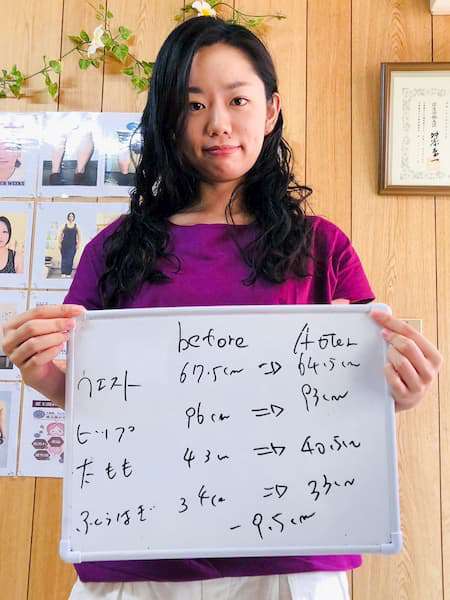 before After
ウエスト 67.5cm ⇒ 64.5cm
ヒップ 96cm ⇒ 93cm
太もも 43cm ⇒ 40.5cm
ふくらはぎ 34cm ⇒ 33cm
-9.5cm